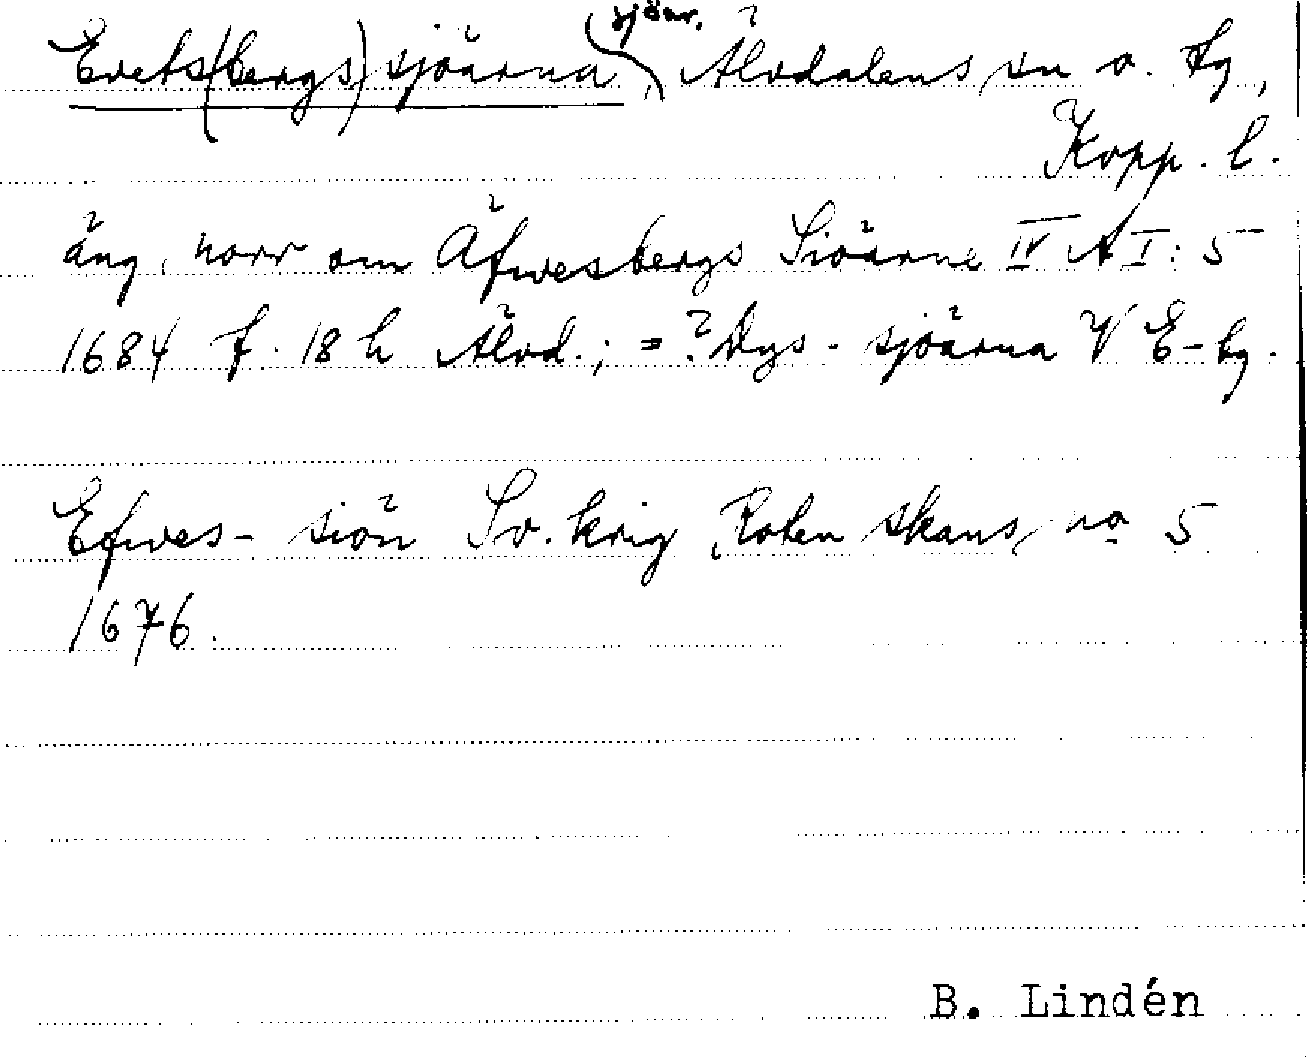 Evets(bergs)sjöarna, sjöar, Älvdalens sn o. tg,
Kopp. l.
äng, norr om Äfwesbergs Siöarne IV A I: 5
1684 f. 18 h Älvd.; = ? Dys-sjöarna V E-bg.
Efwes-siön Sv. krig Roten skans no 5
1676.
B. Lindén